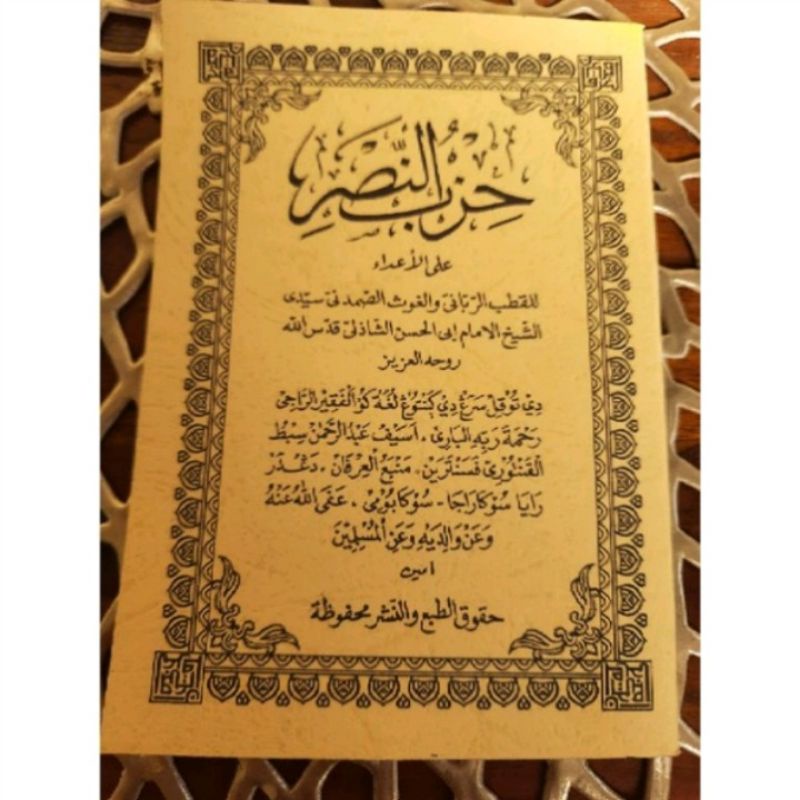 حِزْبُ النَّصْرِ
على الأعداء
للقطب الربانى والغوث الصمدنى سيّدى
الشّيخ الامام ابى الحسن الشاذلىّ قدّس الله
روحه العزيز
دِيْ تُوْقِلْ سَرَڠْ دِيْ كَنْتُوڠْ لُغَةْ كَوْ الْفَقِيْر الرَّاجِىْ
رَحْمَةَ رَبِّهِ الْبَارِىْ ، اَسَيْف عَبْدُ الرَّحْمٰنْ سِبْطُ
الْقَنْتُوْرِىْ فَسَنْتَرَيْن ، مَنْبَعُ الْعِرْفَانْ ،
رَايَا سُوْكَارَاجَا - سُوْكَابُوْمِىْ ، عَفَى اللهُ عَنْهُ
وَعَنْ وَالِدَيْهِ وَعَنِ الْمُسْلِمِيْنَ
امين
حقوق الطبع والنشر محفوظة